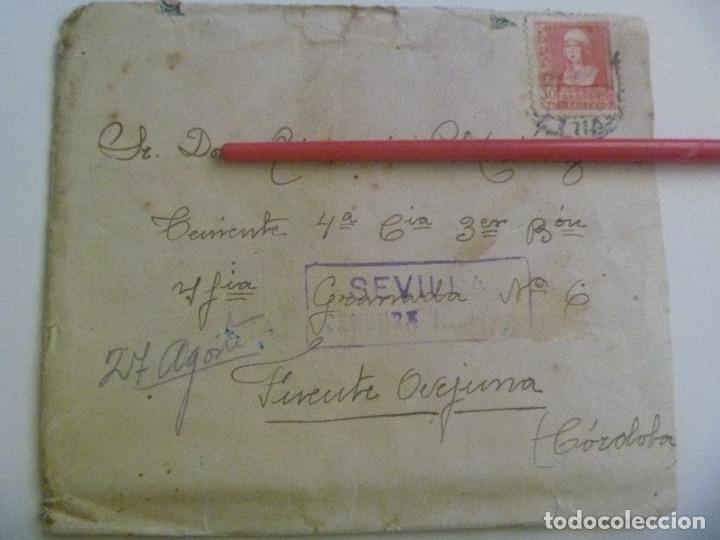 Sr. Don
Teniente 4ª Cia 3er Bón
Yfia Granada Nº 6
SEVILLA
27 Agosto
Fuente Ovejuna
(Córdoba)
30
todocoleccion